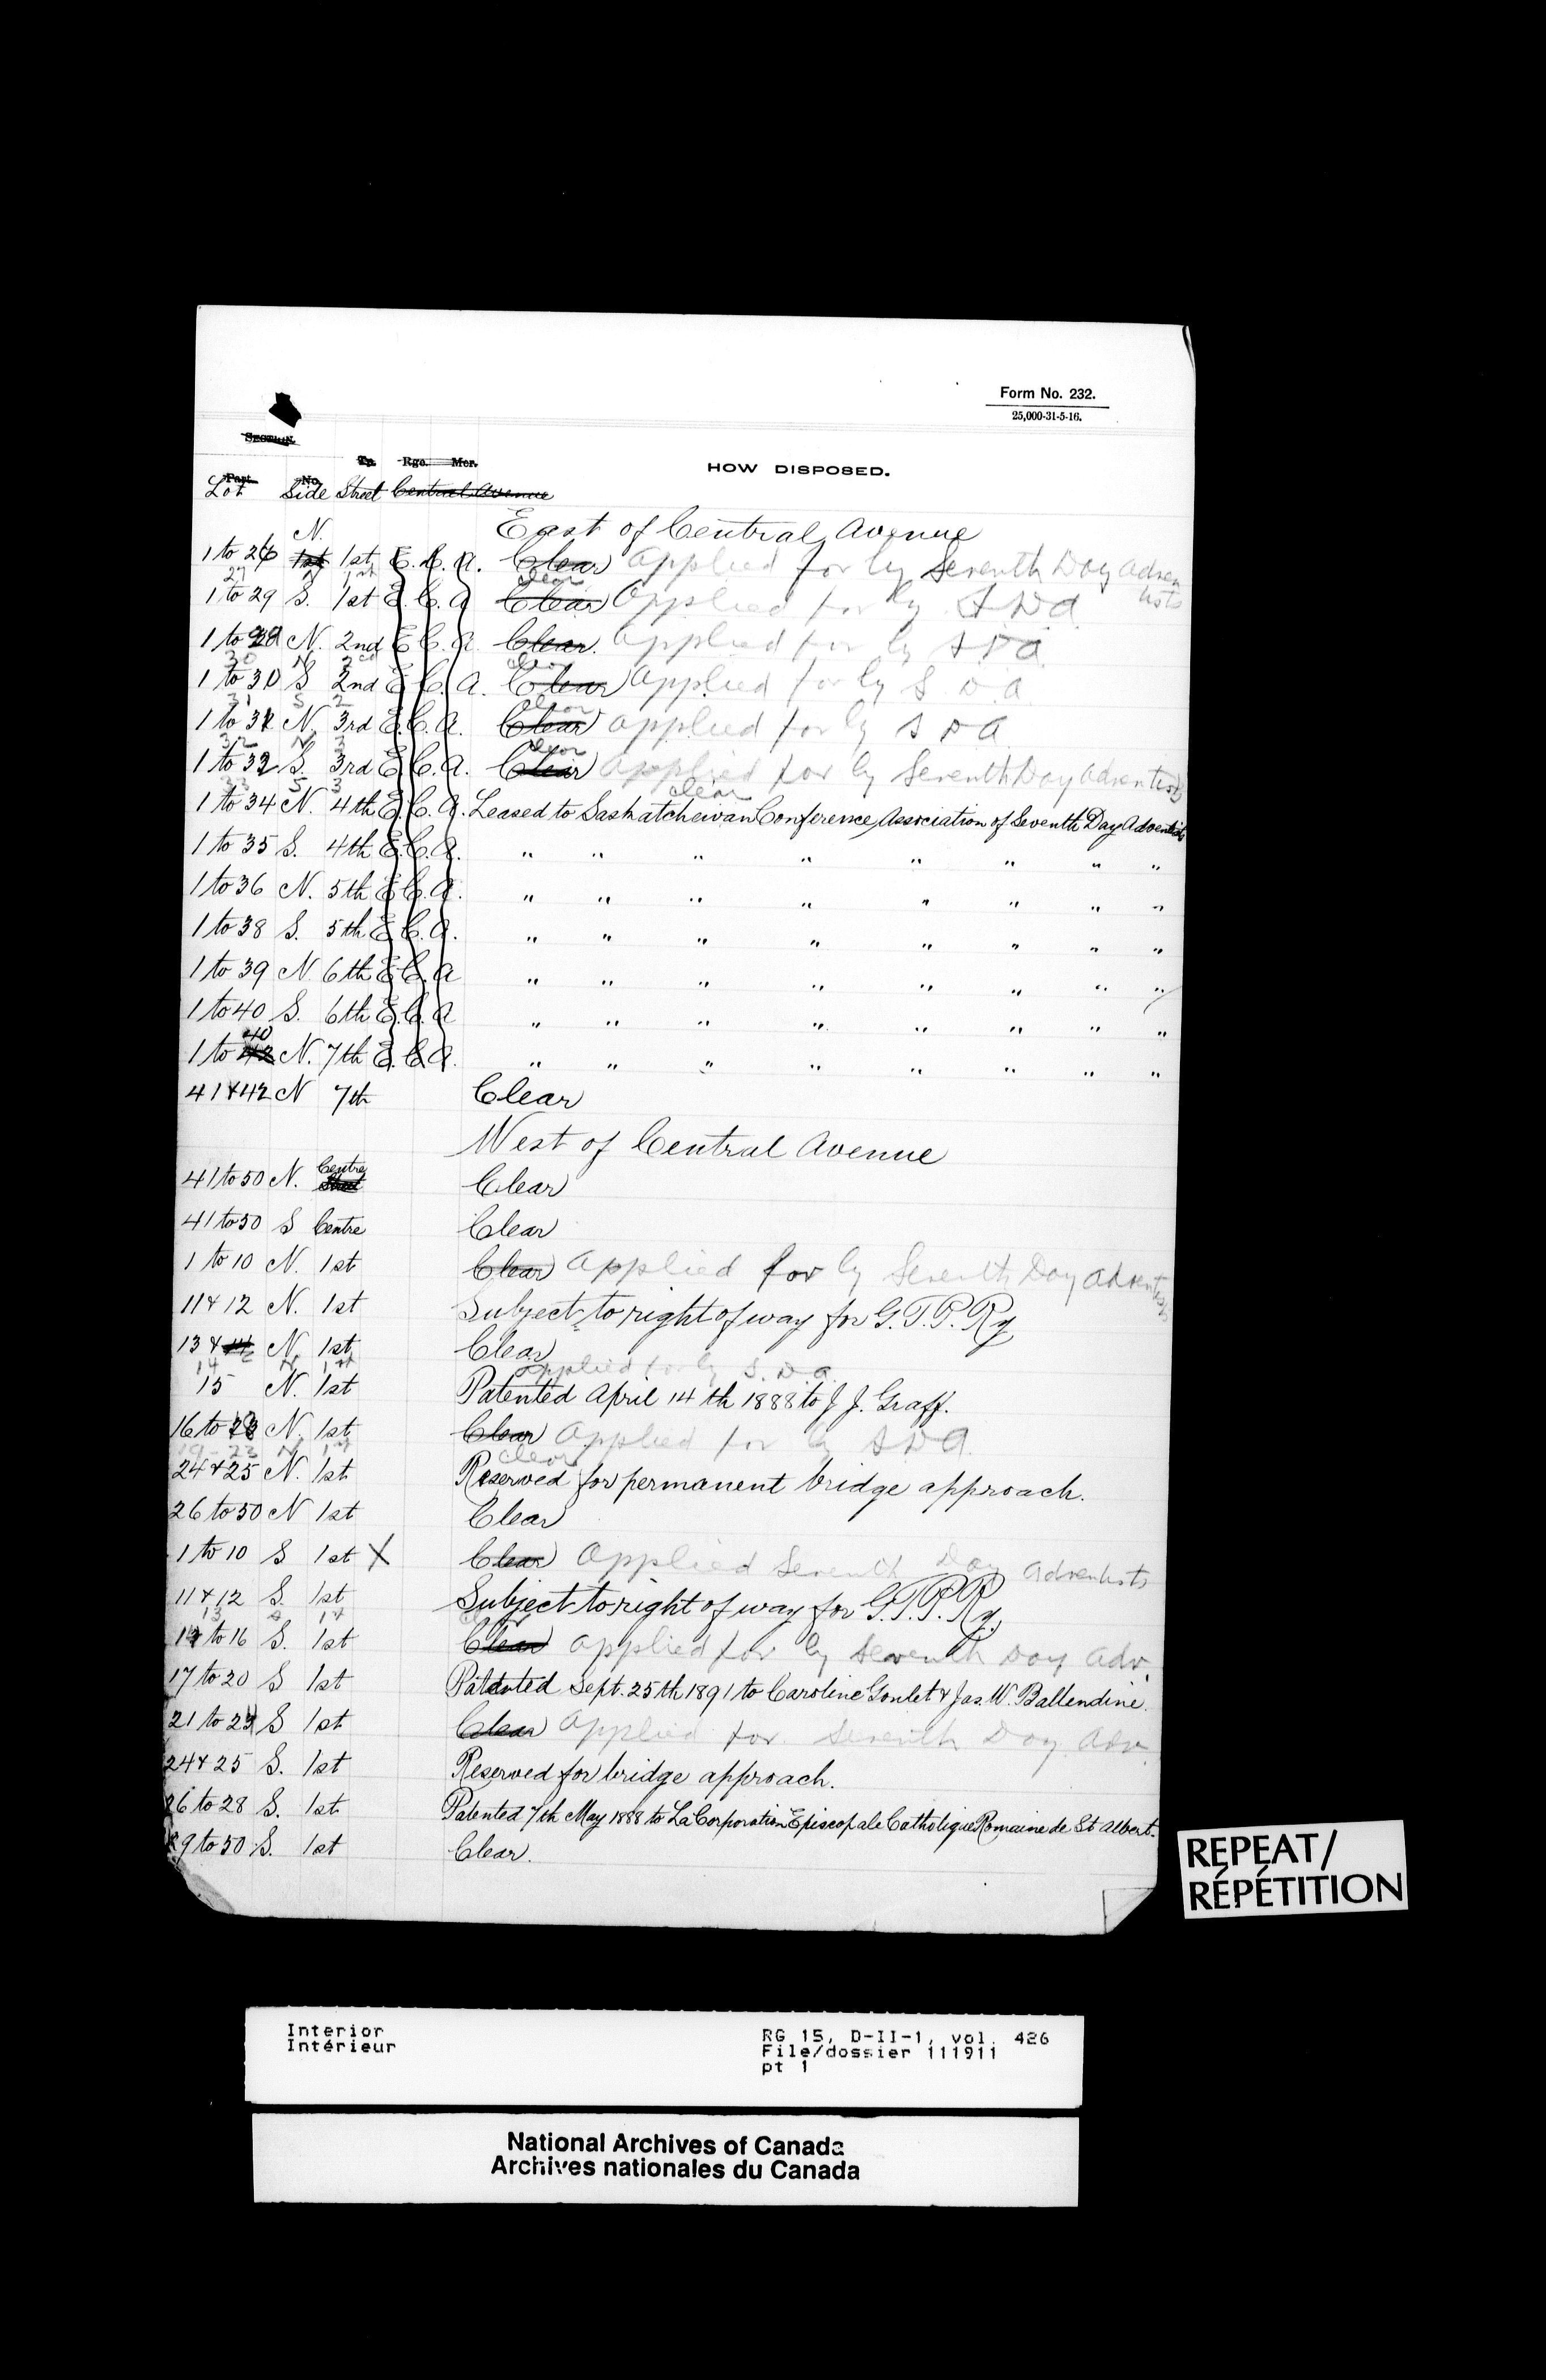 Form No. 232.
25,000-31-5-16.
SECTION.
Tp. Rge. Mer.
HOW DISPOSED.
Part. No.
Lot Side Street Central Avenue
East of Central Avenue
N.
1 to 26 1st 1st E. C. A. Clear Applied for by Seventh Day Adventists
27 N 1st clear
1 to 29 S. 1st E. C. A Clear Applied for by S D A
1 to 29 N. 2nd E C. A. Clear. Applied for by S D A
30 N 2nd clear
1 to 30 S 2nd E C. A. Clear Applied for by S D A
31 S 2 clear
1 to 31 N. 3rd E. C. A. Clear Applied for by S D A
32 N 3 clear
1 to 32 S. 3rd E C. A. Clear Applied for by Seventh Day Adventists
33 S 3 clear
1 to 34 N. 4th E. C. A. Leased to Saskatchewan Conference Association of Seventh Day Adventists
1 to 35 S. 4th E. C. A. " " " " " " " "
1 to 36 N. 5th E C. A. " " " " " " " "
1 to 38 S. 5th E C. A. " " " " " " " "
1 to 39 N. 6th E C. A " " " " " " " "
1 to 40 S. 6th E. C. A " " " " " " " "
40
1 to 42 N. 7th E. C. A. " " " " " " " "
41 & 42 N 7th Clear
West of Central Avenue
Centre
41 to 50 N. Street Clear
41 to 50 S Centre Clear
1 to 10 N. 1st Clear Applied for by Seventh Day Adventists
11 & 12 N. 1st Subject to right of way for G. T. P. Ry
13 & 14 N. 1st Clear
14 N. 1st Applied for by S. D. A.
15 N. 1st Patented April 14th 1888 to J J. Graff.
16 to 18 N. 1st Clear Applied for by S D A.
19-23 N 1st clear
24 & 25 N. 1st Reserved for permanent bridge approach.
26 to 50 N 1st Clear
1 to 10 S 1st X Clear Applied Seventh Day Adventists
11 & 12 S. 1st Subject to right of way for G. T. P. Ry.
13 S 1st
14 to 16 S. 1st Clear Applied for by Seventh Day Adv.
17 to 20 S 1st Patented Sept. 25th 1891 to Caroline Goulet & Jas. W. Ballendine.
21 to 23 S 1st Clear Applied for Seventh Day Adv.
24 & 25 S. 1st Reserved for bridge approach.
26 to 28 S. 1st Patented 7th May 1888 to La Corporation Episcopale Catholique Romaine de St Albert.
29 to 50 S. 1st Clear.
REPEAT/
RÉPÉTITION
Interior
Intérieur
RG 15, D-II-1, vol. 426
File/dossier 111911
pt 1
National Archives of Canada
Archives nationales du Canada